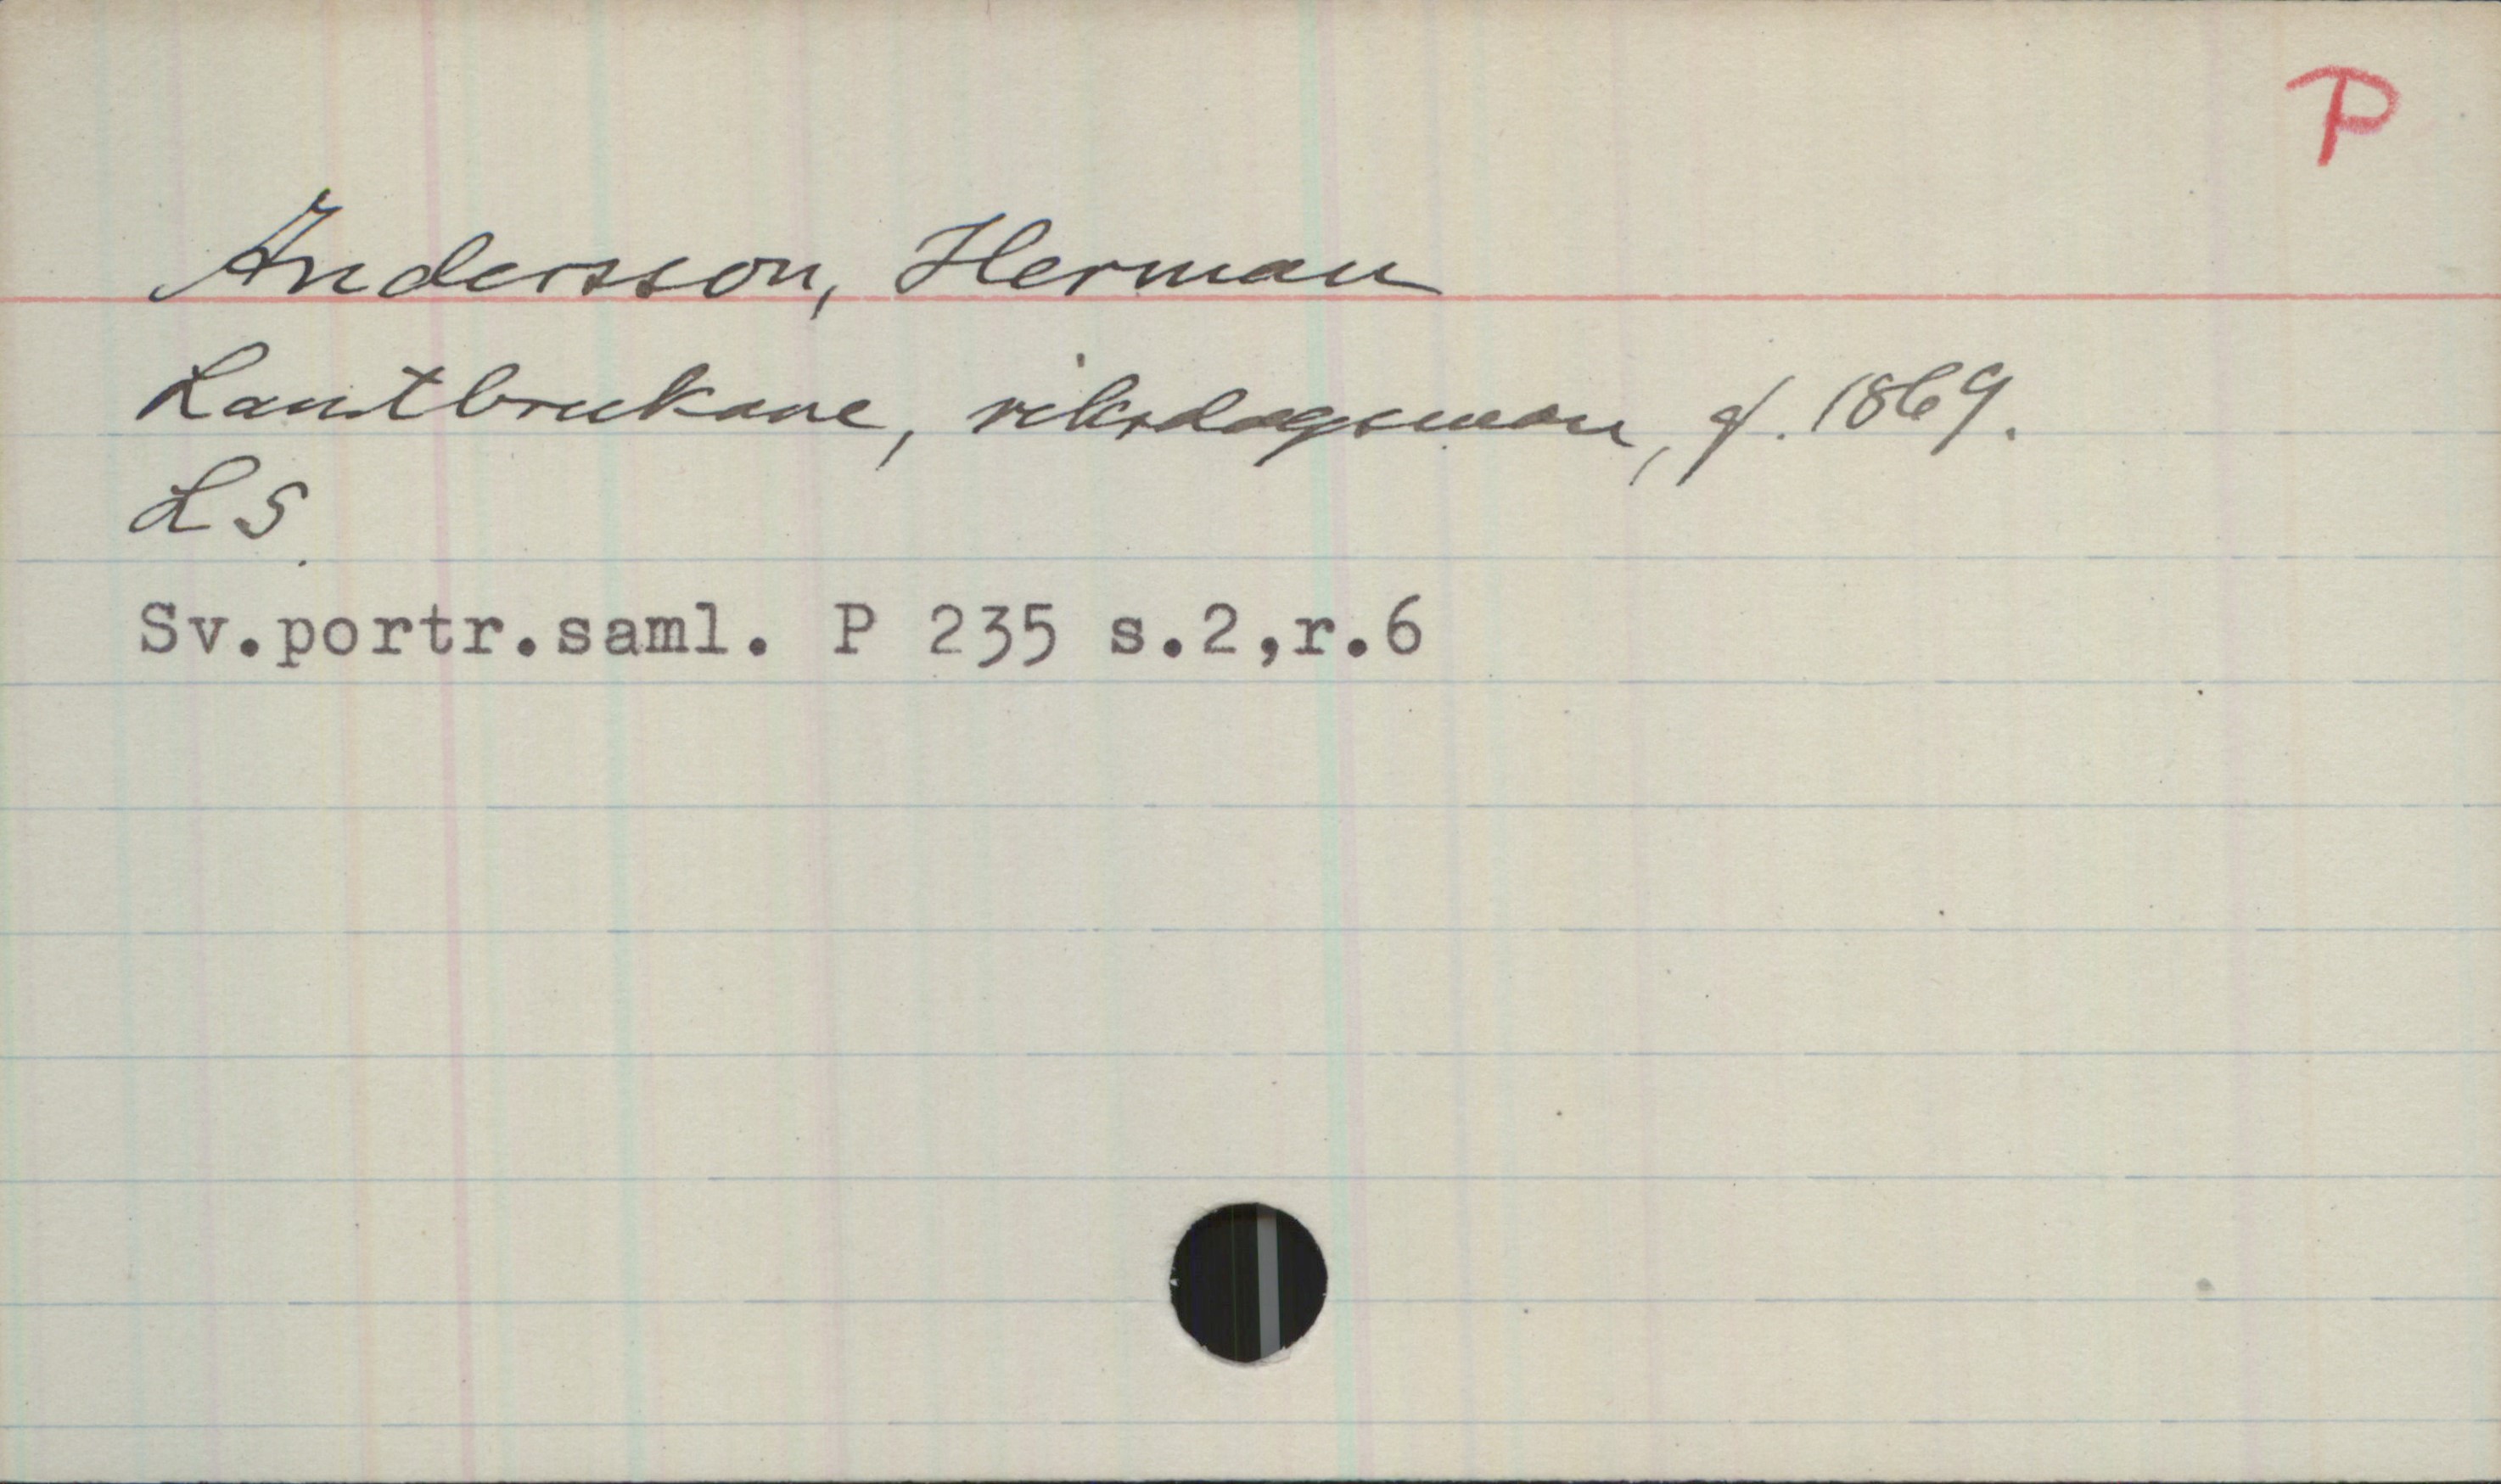 P
Andersson, Herman
Lantbrukare, riksdagsman, f. 1869.
LS.
Sv.portr.saml. P 235 s.2,r.6